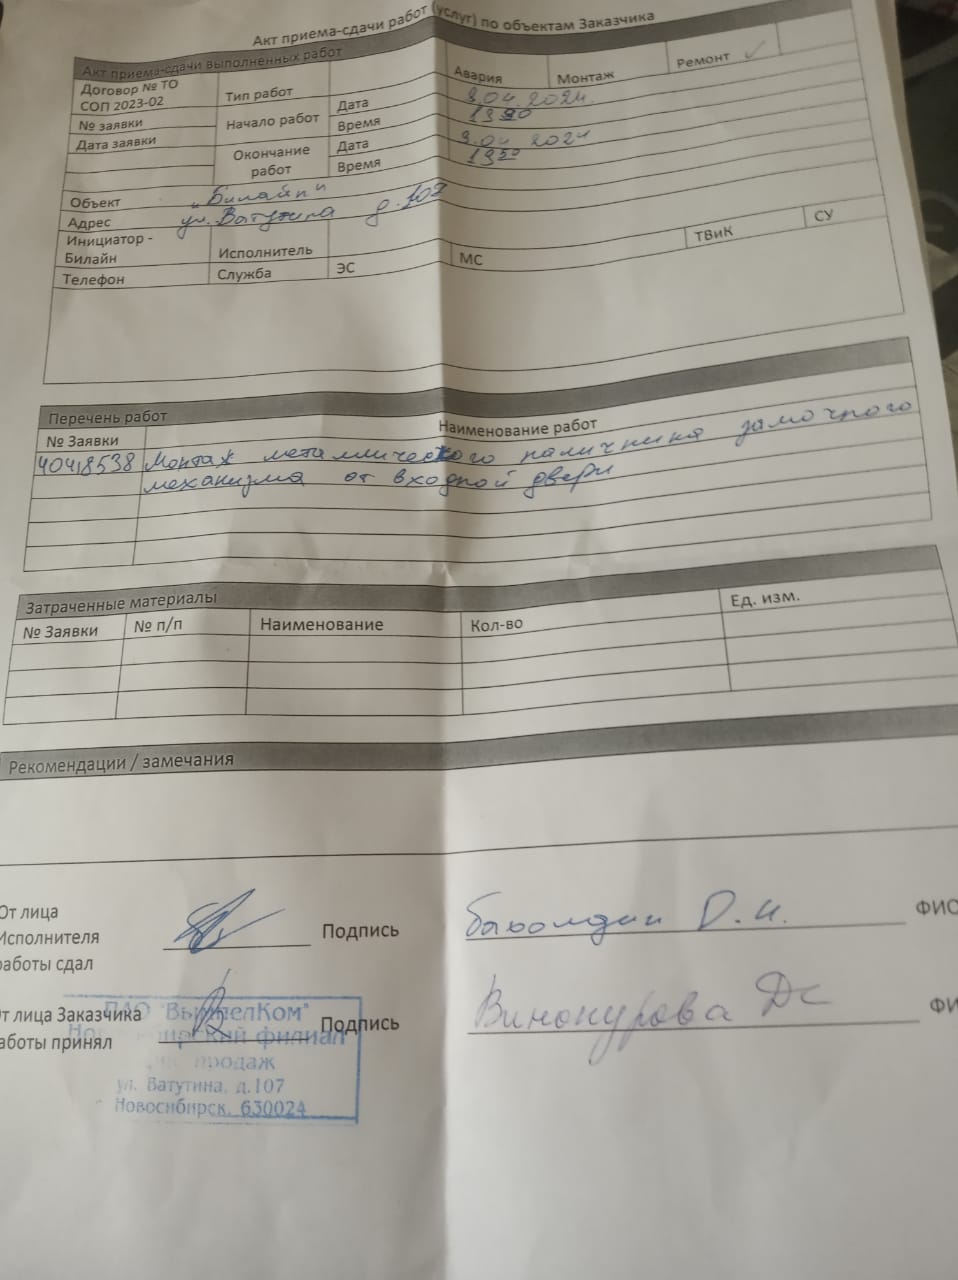 Акт приема-сдачи работ (услуг) по объектам Заказчика
Акт приема-сдачи выполненных работ
Договор № ТО СОП 2023-02
Тип работ
Авария
Монтаж
Ремонт ✓
№ заявки
Начало работ
Дата
9.04.2024
Время
Дата заявки
Окончание работ
Дата
9.04 2024
Время
19 50
Объект
"Билайн"
Адрес
ул. Ватутина д. 107
Инициатор - Билайн
Исполнитель
Телефон
Служба
ЭС
МС
ТВиК
СУ
Перечень работ
№ Заявки
Наименование работ
40418538
Монтаж металлического наличника замочного
механизма от входной двери
Затраченные материалы
№ Заявки
№ п/п
Наименование
Кол-во
Ед. изм.
Рекомендации / замечания
От лица
Исполнителя
работы сдал
Подпись
Д.И.
ФИО
От лица Заказчика
работы принял
Подпись
Винокурова ДС
ФИ
ПАО "ВымпелКом"
Новосибирский филиал
продаж
ул. Ватутина, д.107
Новосибирск, 630024